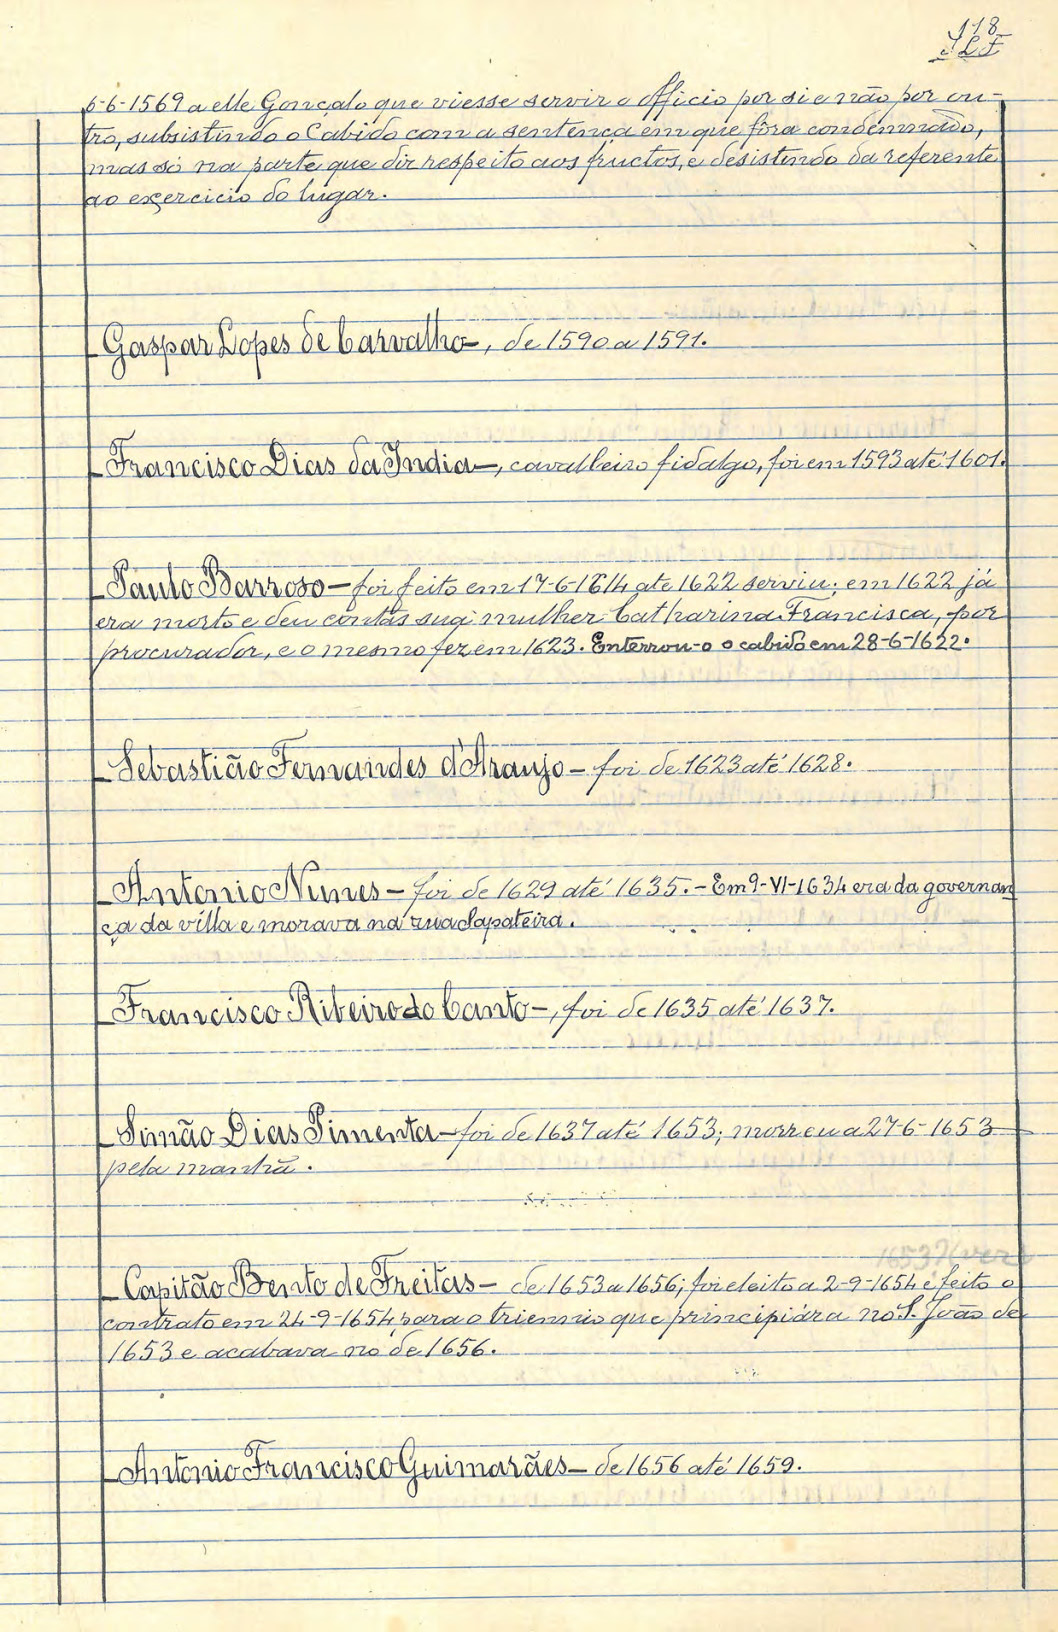 118
6-6-1569 a elle Gonçalo que viesse servir o officio por si e não por ou-
tro, subsistindo o Cabido com a sentença em que fôra condemnado,
mas só na parte que diz respeito aos fructos, e desistindo da referente
ao exercicio do lugar.
Gaspar Lopes de Carvalho-, de 1590 a 1591.
Francisco Dias da India-, cavalheiro fidalgo, foi em 1593 até 1601.
Paulo Barroso- foi feito em 17-6-1614 até 1622 serviu; em 1622 já
era morto e deu contas sua mulher Catharina Francisca, por
procurador, e o mesmo fez em 1623. Enterrou-o o cabido em 28-6-1622.
Sebastião Fernandes d'Araujo- foi de 1623 até 1628.
Antonio Nunes- foi de 1629 até 1635.- Em 9-VI-1634 era da governan
ça da villa e morava na rua Sapateira.
Francisco Ribeiro do Canto-, foi de 1635 até 1637.
Simão Dias Pimenta- foi de 1637 até 1653; morreu a 27-6-1653
pela manhã.
1653?
Capitão Bento de Freitas- de 1653 a 1656; foi eleito a 2-9-1654 e feito o
contrato em 24-9-1654 para o triennio que principiára no S. João de
1653 e acabava no de 1656.
Antonio Francisco Guimarães- de 1656 até 1659.